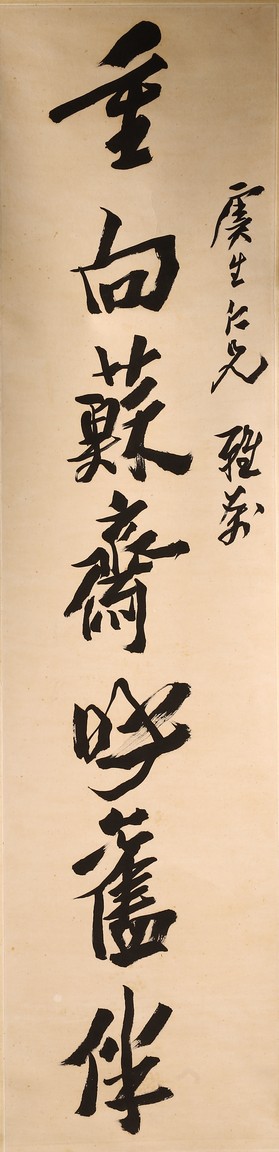 虞生仁兄 雅鑒
重向蘇齋呼舊伴